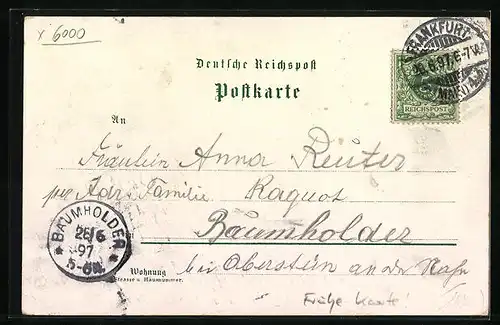 x 6000
Deutsche Reichspost
Postkarte
FRANKFURT
6.97.6-7N.
MAIN
REICHSPOST
An
Fräulein Anna Reuter
per Adr. Familie Raquot
Baumholder
bei Oberstein an der Nahe
BAUMHOLDER
26/6
97
5-6N.
Wohnung
Strasse u. Hausnummer.
Frühe Karte!